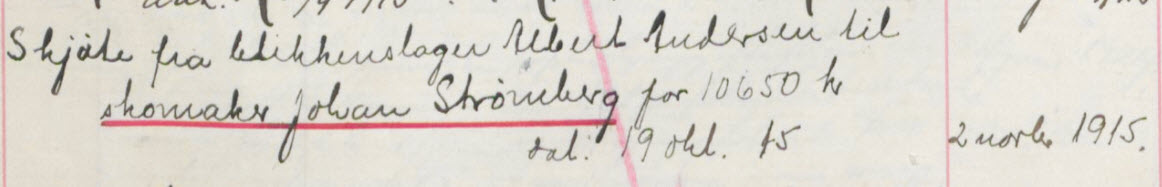 Skjøte fra blikkenslager Albert Andersen til
skomaker Johan Strømberg for 10650 kr
dat. 19 okt. 15
2 novbr 1915.